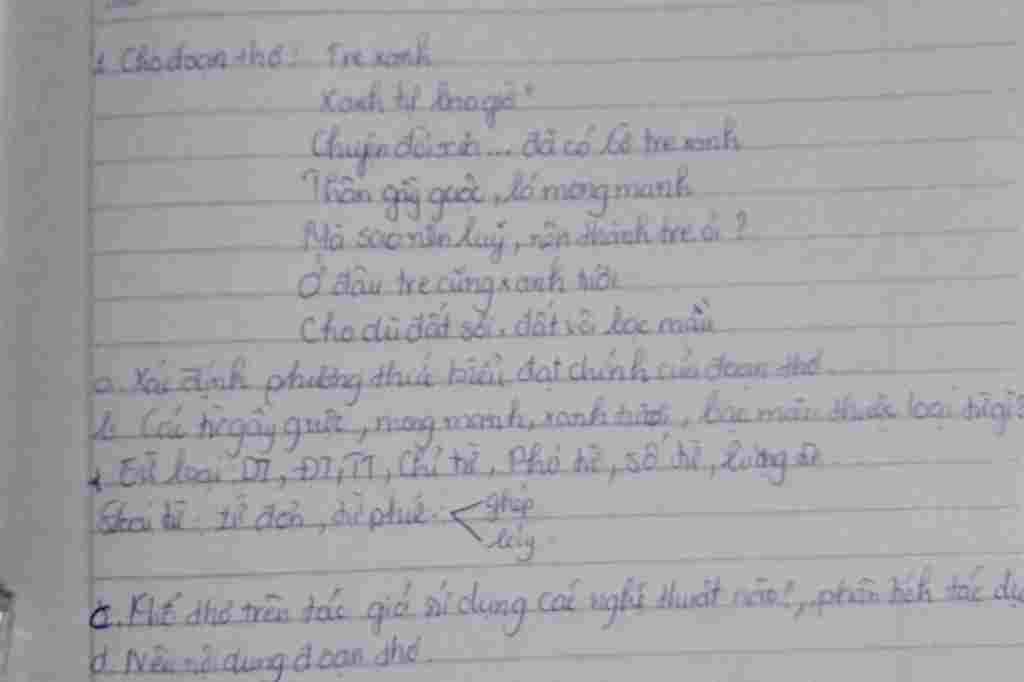 1. Cho đoạn thơ: Tre xanh
Xanh tự bao giờ?
Chuyện đời xưa... đã có bờ tre xanh
Thân gầy guộc, lá mong manh
Mà sao nên luỹ, nên thành tre ơi?
Ở đâu tre cũng xanh tươi
Cho dù đất sỏi, đất vôi bạc màu
a. Xác định phương thức biểu đạt chính của đoạn thơ.
b. Các từ gầy guộc, mong manh, xanh tươi, bạc màu thuộc loại từ gì?
Từ loại DT, ĐT, TT, Chỉ từ, Phó từ, số từ, lượng từ
từ đơn, từ phức. ghép
láy
c. Khổ thơ trên tác giả sử dụng các nghệ thuật nào?, phân tích tác dụ
d. Nêu nội dung đoạn thơ.